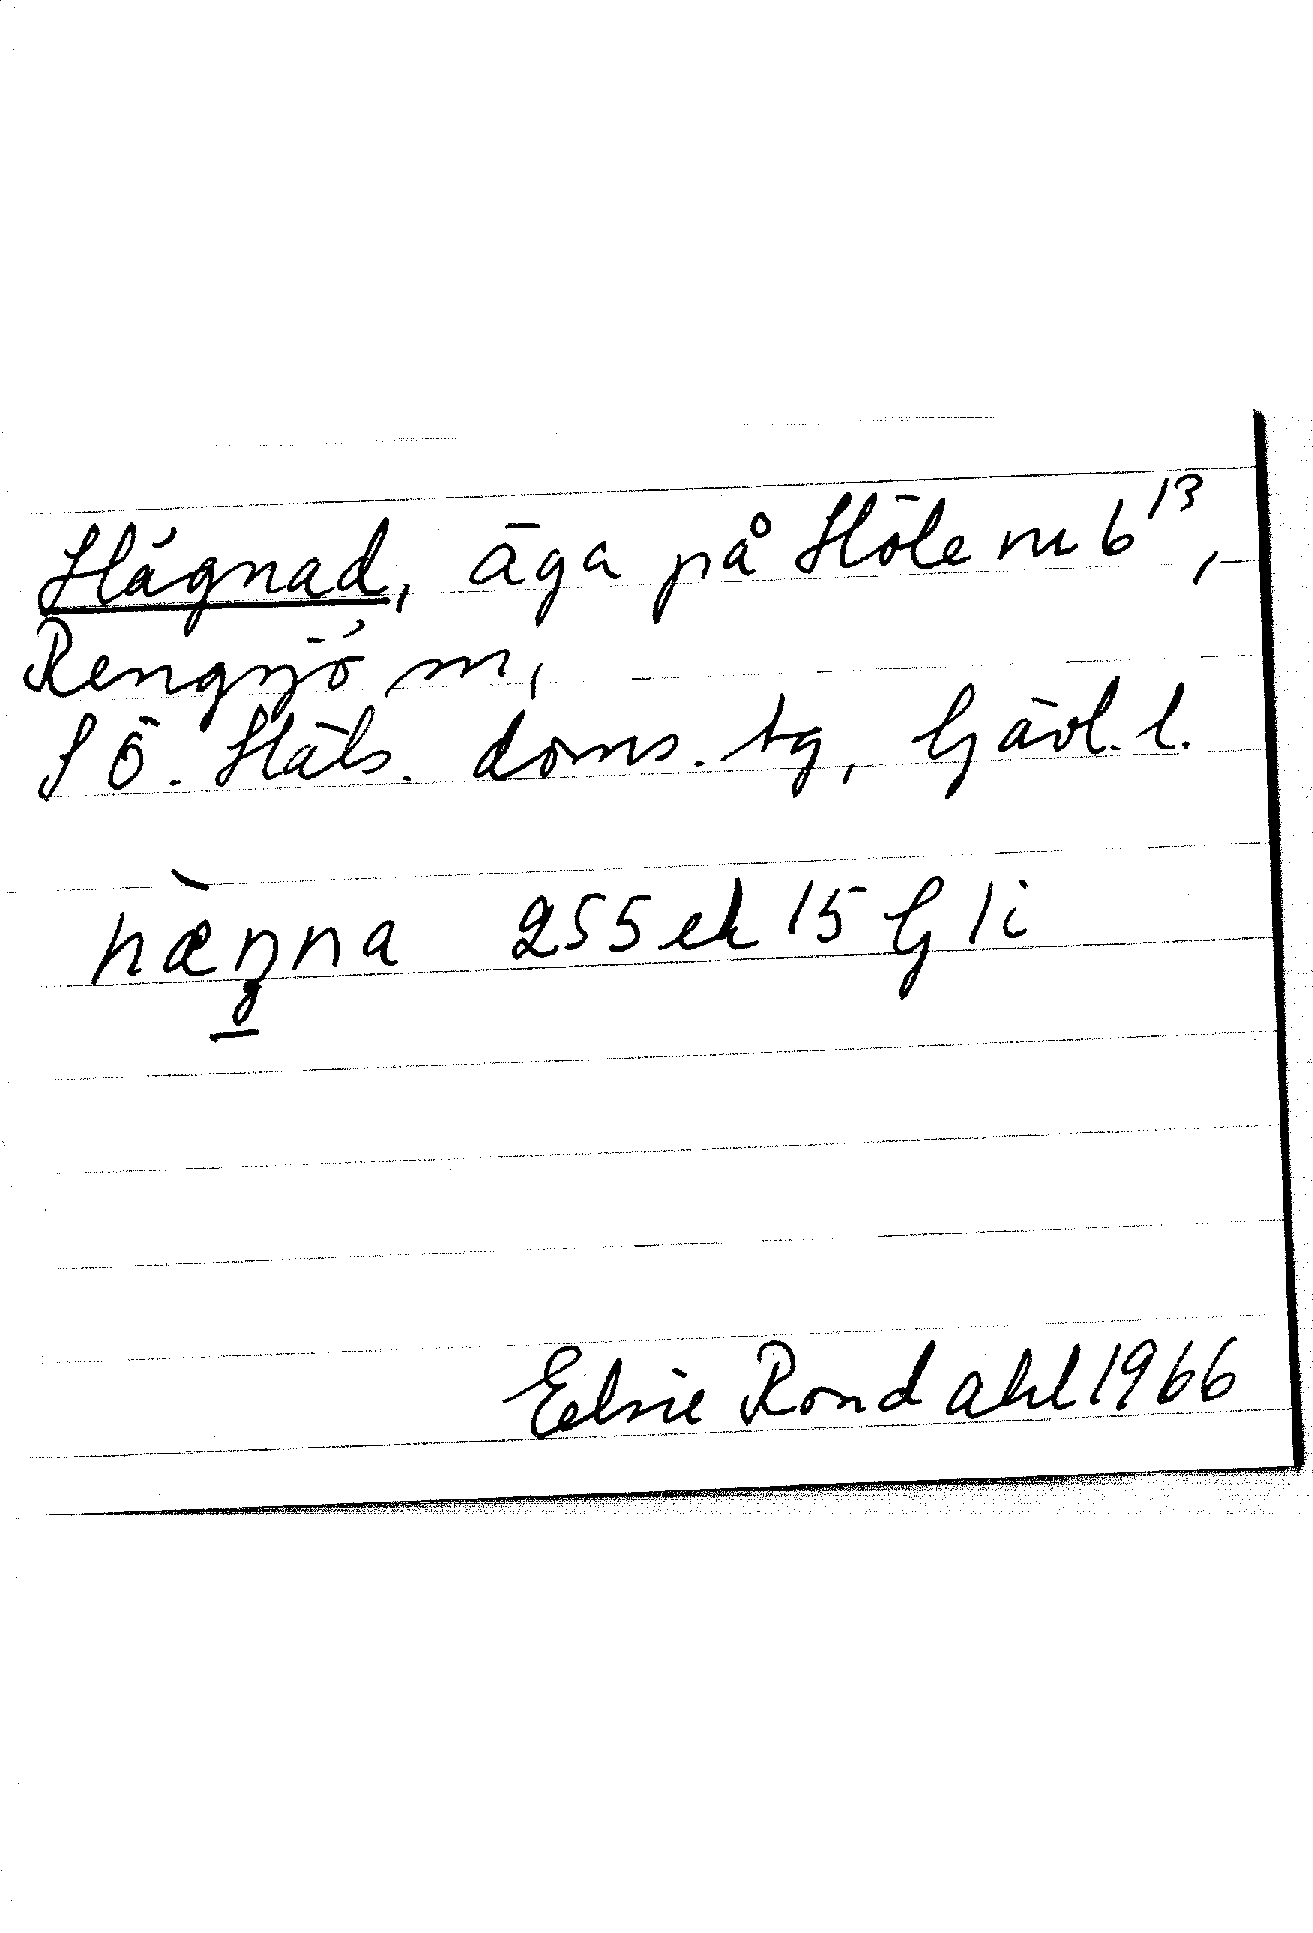 Hägnad, äga på Höle nr 6¹³,
Rengsjö sn,
S Ö. Häls. doms. tg, Gävl. l.
hæ̀ŋna 255 ek 15 G 1i
Elsie Rondahl 1966